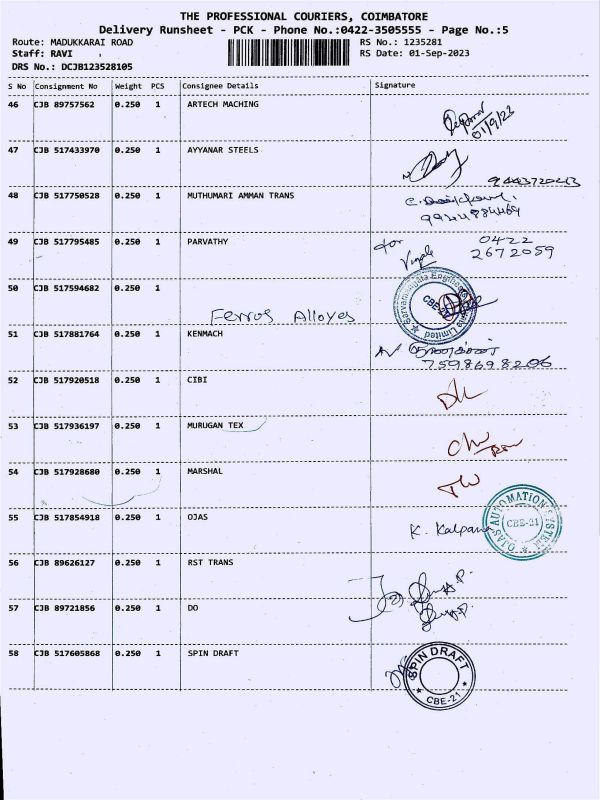 THE PROFESSIONAL COURIERS, COIMBATORE
Delivery Runsheet - PCK - Phone No.:0422-3505555 - Page No.:5
Route: MADUKKARAI ROAD
RS No.: 1235281
Staff: RAVI
RS Date: 01-Sep-2023
DRS No.: DCJB123528105
S No Consignment No Weight PCS Consignee Details Signature
46 CJB 89757562 0.250 1 ARTECH MACHING
01/9/23
47 CJB 517433970 0.250 1 AYYANAR STEELS
48 CJB 517750528 0.250 1 MUTHUMARI AMMAN TRANS
49 CJB 517795485 0.250 1 PARVATHY
for 0422
2672059
50 CJB 517594682 0.250 1
Ferros Alloyes
CBE
Limited
51 CJB 517881764 0.250 1 KENMACH
7598698206
52 CJB 517920518 0.250 1 CIBI
53 CJB 517936197 0.250 1 MURUGAN TEX
54 CJB 517928680 0.250 1 MARSHAL
55 CJB 517854918 0.250 1 OJAS
K. Kalpana
OJAS AUTOMATION SYSTEM
CBE-21
56 CJB 89626127 0.250 1 RST TRANS
57 CJB 89721856 0.250 1 DO
58 CJB 517605868 0.250 1 SPIN DRAFT
SPIN DRAFT
CBE-21